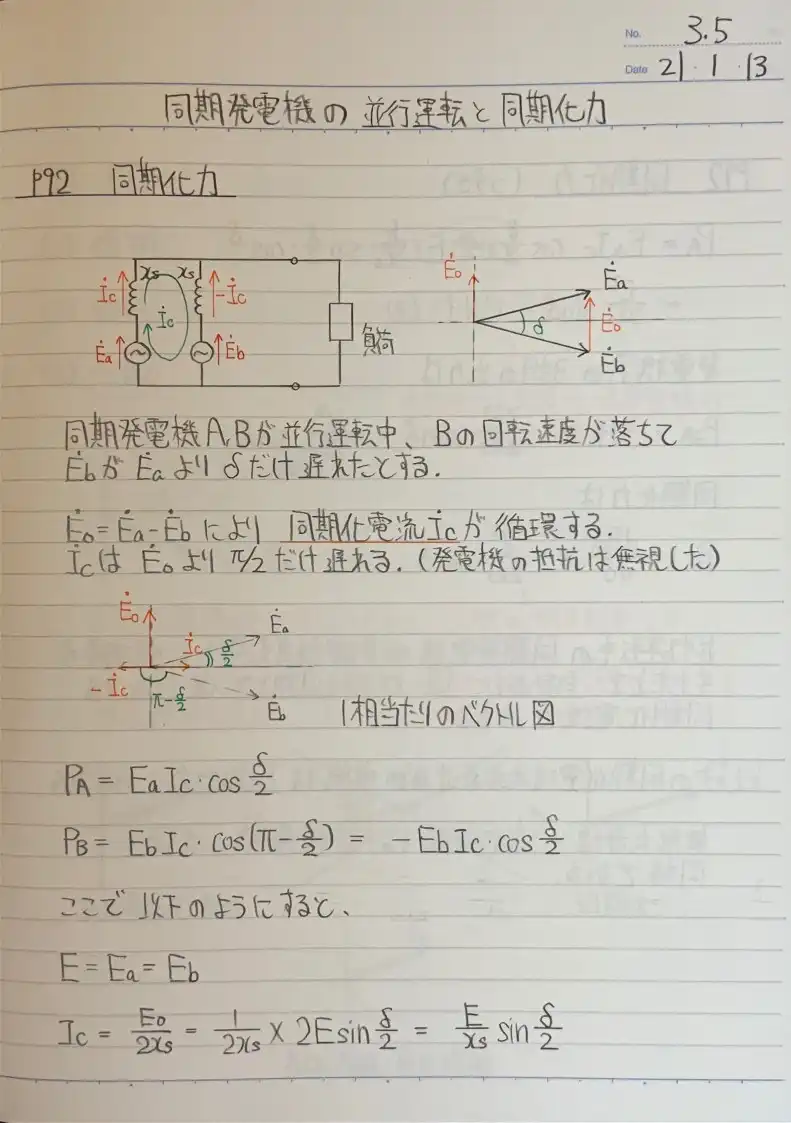 No. 3.5
Date 21・1・13
同期発電機の並行運転と同期化力
P92 同期化力
İc xs xs -İc
İc
Ėa Ėb
負荷
Ė₀ Ėa
δ Ė₀
Ėb
同期発電機A,Bが並行運転中、Bの回転速度が落ちて
ĖbがĖaよりδだけ遅れたとする.
Ė₀=Ėa-Ėbにより 同期化電流İcが循環する.
İcはĖ₀よりπ/2だけ遅れる.(発電機の抵抗は無視した)
Ė₀ Ėa
İc δ/2
-İc
π-δ/2 Ėb
1相当たりのベクトル図
PA = EaIc・cos δ/2
PB = EbIc・cos(π-δ/2) = -EbIc・cos δ/2
ここで以下のようにすると、
E = Ea = Eb
Ic = E₀/2xs = 1/2xs × 2Esin δ/2 = E/xs sin δ/2